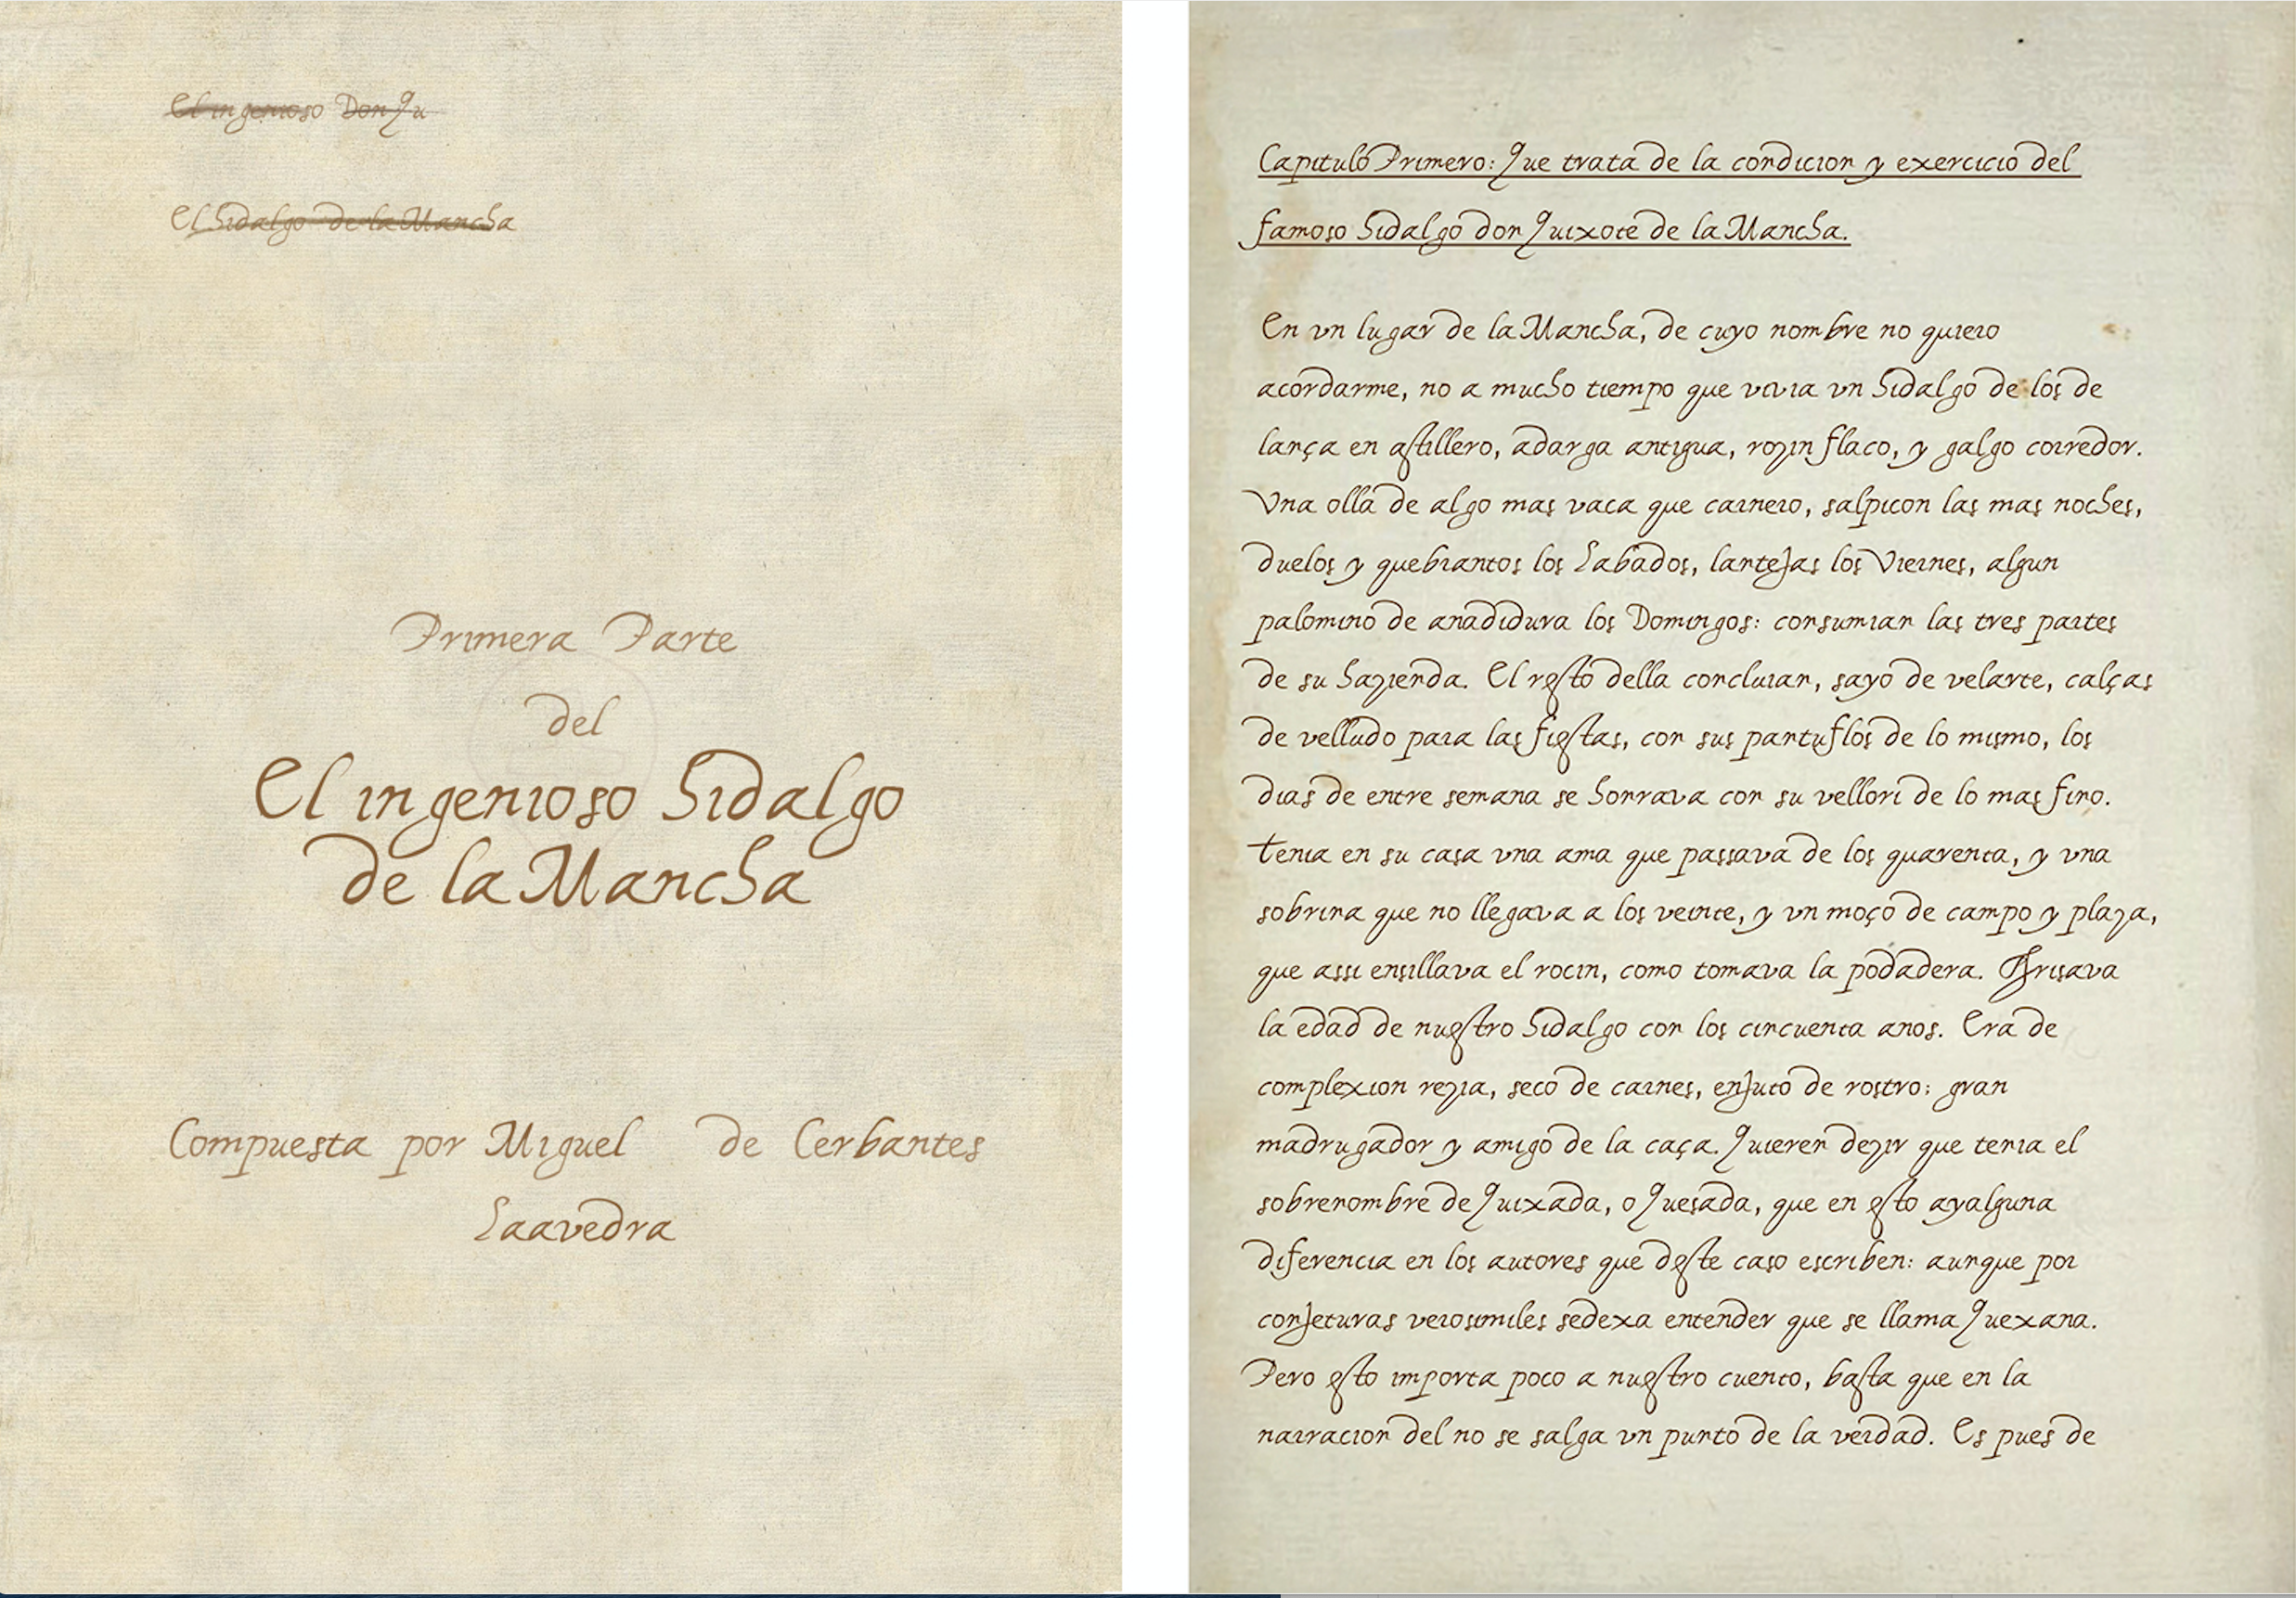 El ingenioso Don Qu
El hidalgo de la Mancha
Primera Parte
del
El ingenioso hidalgo
de la Mancha
Compuesta por Miguel de Cerbantes
Saavedra
Capitulo Primero: Que trata de la condicion y exercicio del
famoso hidalgo don Quixote de la Mancha.
En vn lugar de la Mancha, de cuyo nombre no quiero
acordarme, no a mucho tiempo que vivia vn hidalgo de los de
lança en astillero, adarga antigua, rozin flaco, y galgo corredor.
Vna olla de algo mas vaca que carnero, salpicon las mas noches,
duelos y quebrantos los Sabados, lantejas los Viernes, algun
palomino de anadidura los Domingos: consumian las tres partes
de su hazienda. El resto della concluian, sayo de velarte, calças
de velludo para las fiestas, con sus pantuflos de lo mismo, los
dias de entre semana se honrava con su vellori de lo mas fino.
tenia en su casa vna ama que passava de los quarenta, y vna
sobrina que no llegava a los veinte, y vn moço de campo y plaza,
que assi ensillava el rocin, como tomava la podadera. Frisava
la edad de nuestro hidalgo con los cincuenta anos. Era de
complexion rezia, seco de carnes, enjuto de rostro: gran
madrugador y amigo de la caça. Quieren dezir que tenia el
sobrenombre de Quixada, o Quesada, que en esto ayalguna
diferencia en los autores que deste caso escriben: aunque por
conjeturas verosimiles sedexa entender que se llama Quexana.
Pero esto importa poco a nuestro cuento, basta que en la
narracion del no se salga vn punto de la verdad. Es pues de